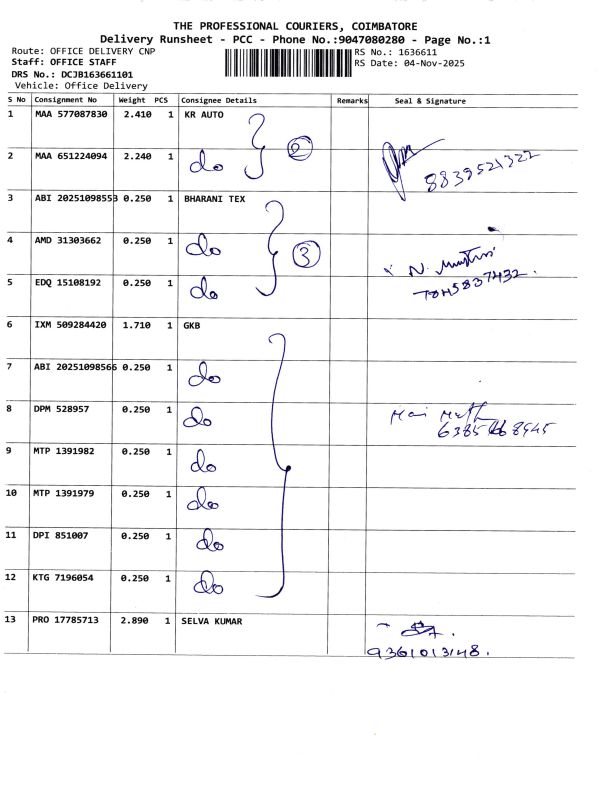 THE PROFESSIONAL COURIERS, COIMBATORE
Delivery Runsheet - PCC - Phone No.:9047080280 - Page No.:1
Route: OFFICE DELIVERY CNP
RS No.: 1636611
Staff: OFFICE STAFF
RS Date: 04-Nov-2025
DRS No.: DCJB163661101
Vehicle: Office Delivery
S No Consignment No Weight PCS Consignee Details Remarks Seal & Signature
1 MAA 577087830 2.410 1 KR AUTO
2 MAA 651224094 2.240 1 do 2
8839521322
3 ABI 20251098553 0.250 1 BHARANI TEX
4 AMD 31303662 0.250 1 do 3
N.
5 EDQ 15108192 0.250 1 do
6 IXM 509284420 1.710 1 GKB
7 ABI 20251098566 0.250 1 do
8 DPM 528957 0.250 1 do
9 MTP 1391982 0.250 1 do
10 MTP 1391979 0.250 1 do
11 DPI 851007 0.250 1 do
12 KTG 7196054 0.250 1 do
13 PRO 17785713 2.890 1 SELVA KUMAR
9361013148.